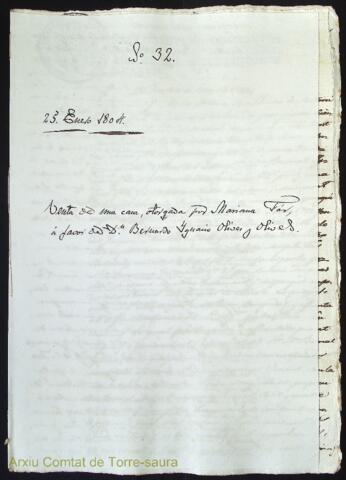 Nº 32.
23. Enero 1804.
Venta de una casa, otorgada por Mariana
à favor de Dn. Bernardo Ygnacio Olives y Olives.
Arxiu Comtat de Torre-saura